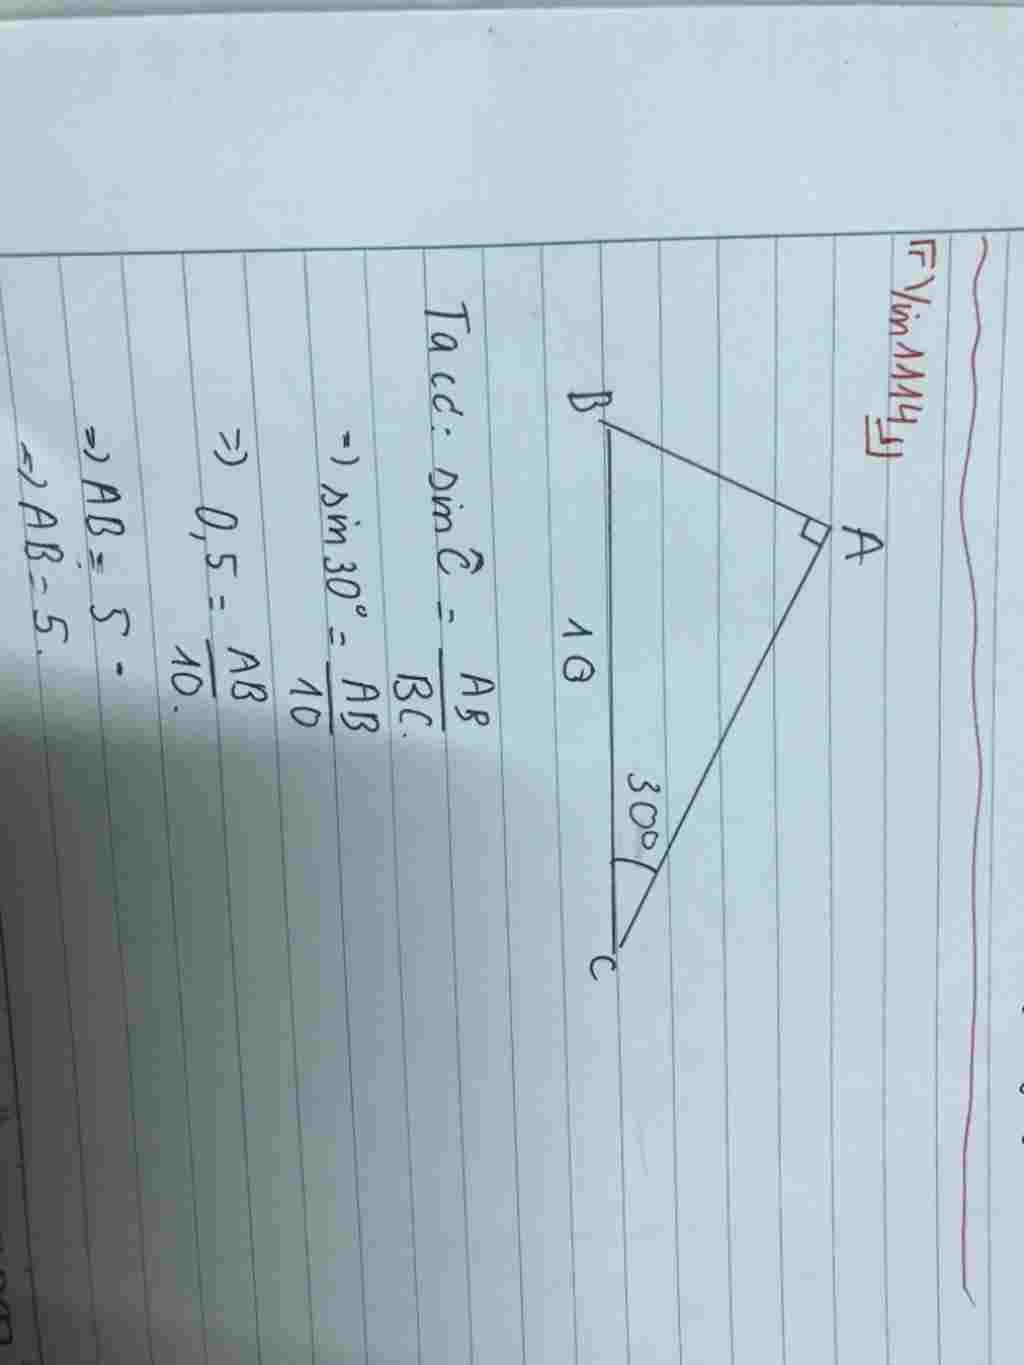 『Vin1114』
A
B
30°
C
10
Ta có: sin Ĉ = AB/BC.
=> sin 30° = AB/10
=> 0,5 = AB/10.
=> AB = 5.
=> AB = 5.